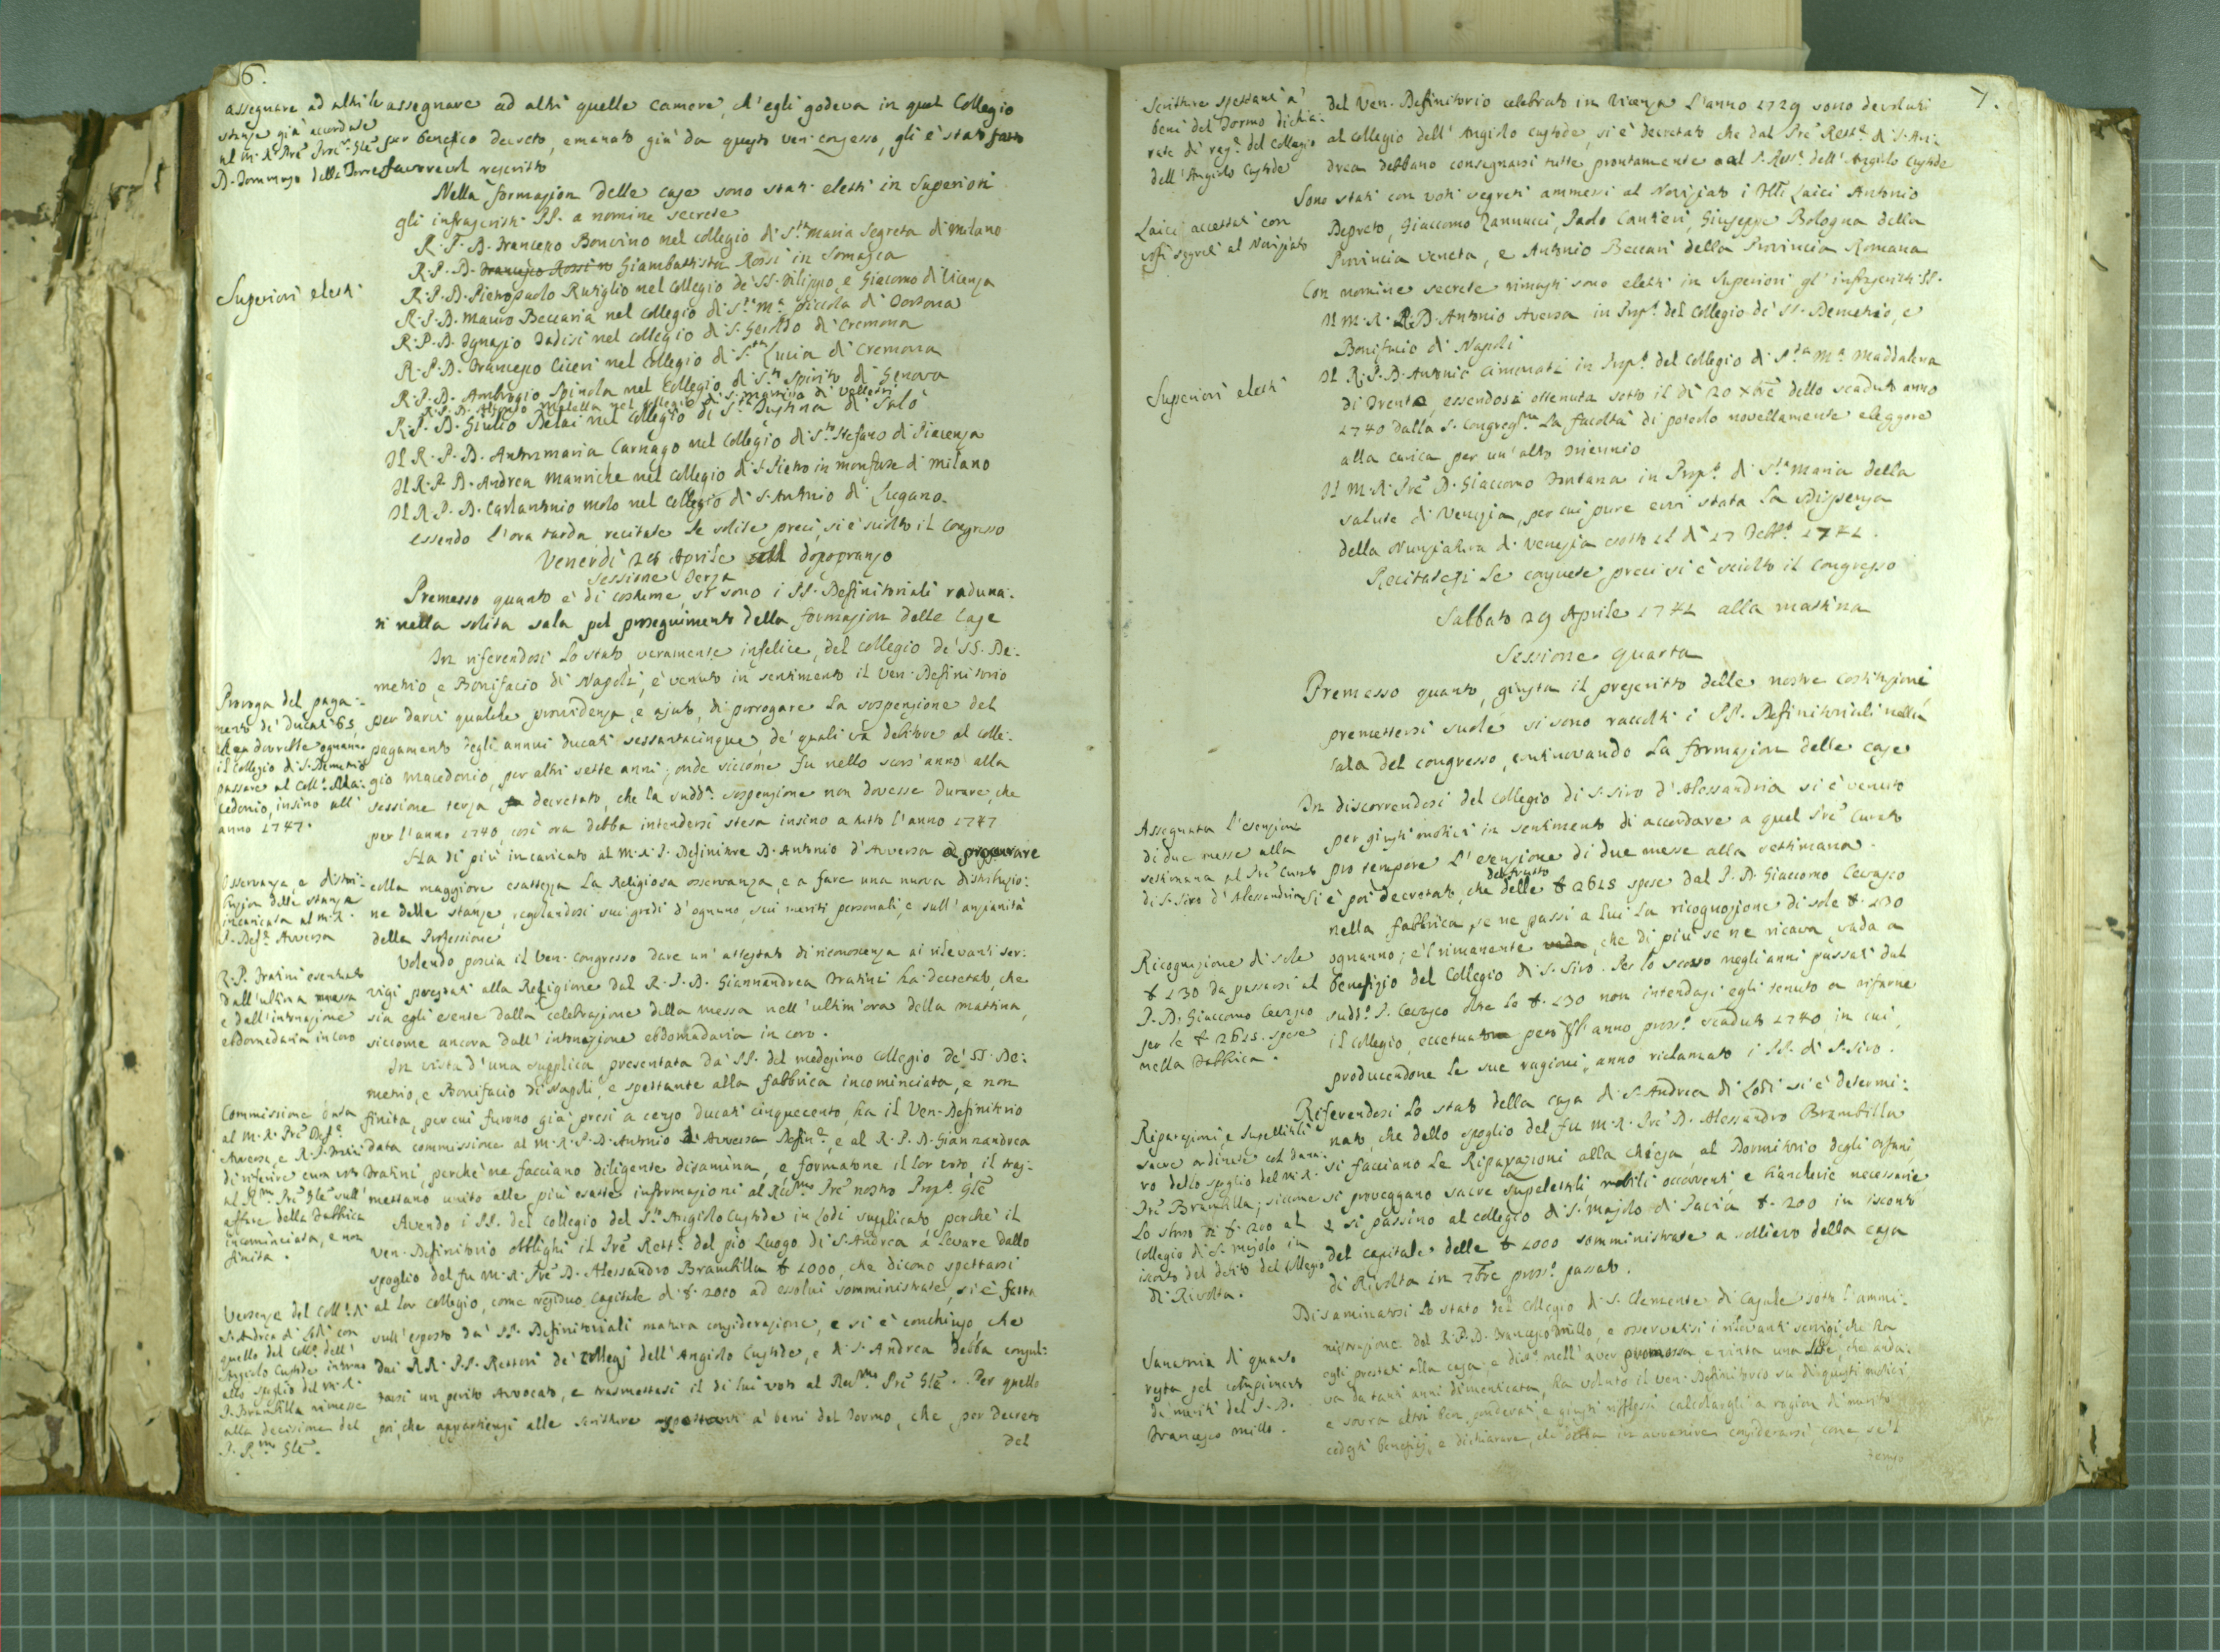 6.
assegnare ad altri le
stanze già accordate
al M. R. Prē Proc. Glē
D. Domenico della Torre
assegnare ad altri quelle camere, ch'egli godeva in quel Collegio
per benefico decreto, emanato già da questo ven. congresso, gli è stato fatto
favorevol rescritto
Nella formazion delle case sono stati eletti in Superiori
gli infrascritti PP. a nomine secrete
Superiori eletti
R. P. D. Francesco Bonvino nel collegio di S.ta Maria Segreta di Milano
R. P. D. Francesco Rossi n Giambattista Rossi in Somasca
R. P. D. Pietropaolo Ruviglio nel collegio de' SS. Filippo, e Giacomo di Vicenza
R. P. D. Mauro Beccaria nel collegio di S.ta M.a Piccola di Tortona
R. P. D. Ignazio Tadisi nel collegio di S. Geroldo di Cremona
R. P. D. Francesco Ciceri nel Collegio di S.ta Lucia di Cremona
R. P. D. Ambrogio Spinola nel Collegio di S.to Spirito di Genova
R. P. D. Alfonso Matella nel collegio di S. Martino di Velletri
R. P. D. Giulio Belai nel Collegio di S.ta Justina di Salò
Il R. P. D. Antonmaria Carnago nel Collegio di S.to Stefano di Piacenza
Il R. P. D. Andrea Manriche nel Collegio di S. Pietro in Monforte di Milano
Il R. P. D. Carlantonio Molo nel Collegio di S. Antonio di Lugano.
Essendo l'ora tarda recitate le solite preci, si è sciolto il Congresso
Venerdì 28 Aprile dopopranzo
Sessione Terza
Premesso quanto è di costume, si sono i PP. Definitoriali raduna-
ti nella solita sala pel proseguimento della formazion delle Case
Proroga del paga-
mento di ducati 65,
che dovrebbe ognanno
il collegio di S. Demetrio
passare al Coll.o Ma-
cedonio, insino all'
anno 1747.
In riferendosi lo stato veramente infelice, del collegio de' SS. De-
metrio, e Bonifacio di Napoli, è venuto in sentimento il Ven. Definitorio
per darvi qualche provvidenza, e ajuto, di prorogare la sospensione del
pagamento degli annui ducati sessantacinque, de' quali va debitore al colle-
gio Macedonio, per altri sette anni; onde siccome fu nello scors'anno alla
sessione terza decretato, che la sudd.a sospenzione non dovesse durare, che
per l'anno 1740, così ora debba intendersi stesa insino a tutto l'anno 1747
Osservanza, e distri-
buzion delle stanze
incaricata al M. R.
P. Def.e Aversa
Ha di più incaricato al M. R. P. Definitore D. Antonio d'Aversa a procurare
colla maggiore esattezza la Religiosa osservanza, e a fare una nuova distribuzio-
ne delle stanze, regolandosi sui gradi d'ognuno, sui meriti personali, e sull'anzianità
della Professione
R. P. Fratini esentuato
dall'ultima messa
e dall'intonazione
ebdomadaria in coro
Volendo poscia il ven. Congresso dare un'attestato di riconoscenza ai rilevanti ser-
vigi prestati alla Religione dal R. P. D. Giannandrea Fratini ha decretato, che
sia egli esente dalla celebrazione della messa nell'ultim'ora della mattina,
siccome ancora dall'intonazione ebdomadaria in coro.
Commissione data
al M. R. Prē Def.e
Aversa, e R. P. Fratini
di riferire cum voto
al R.mo Prē Glē sull'
affare della Fabbrica
incominciata, e non
finita.
In vista d'una supplica presentata da' PP. del medesimo collegio de' SS. De-
metrio, e Bonifacio di Napoli, e spettante alla fabbrica incominciata, e non
finita, per cui furono già presi a censo ducati cinquecento, ha il Ven. Definitorio
data commissione al M. R. P. D. Antonio Aversa Defin.e, e al R. P. D. Giannandrea
Fratini, perchè ne facciano diligente disamina, e formatone il lor voto, il tras-
mettano unito alle più esatte informazioni al R.mo Prē nostro Prep.o Glē
Vertenze del Coll.o di
S. Andrea di Lodi con
quello del Coll.o dell'
Angiolo Custode intorno
allo spoglio del M. R.
P. Brambilla rimesse
alla decisione del
P. R.mo Glē.
Avendo i PP. del collegio del S.to Angiolo Custode in Lodi supplicato perchè il
Ven. Definitorio obblighi il Prē Rett.e del pio Luogo di S. Andrea a levare dallo
spoglio del fu M. R. Prē D. Alessandro Brambilla £ 1000, che dicono spettarsi
al lor Collegio, come residuo capitale di £ 2000 ad essolui somministrate, si è fatta
sull'esposto da' PP. Definitoriali matura considerazione, e si è conchiuso, che
dai RR. PP. Rettori de' Collegj dell'Angiolo Custode, e di S. Andrea debba consul-
tarsi un perito Avvocato, e trasmettasi il di lui voto al Reu.mo Prē Glē. Per quello
poi, che appartiensi alle scritture spettanti a' beni del Tormo, che, per Decreto
del
7.
Scritture spettanti a'
beni del Tormo dichia-
rate di rag.e del Collegio
dell'Angiolo Custode
del Ven. Definitorio celebrato in Vicenza l'anno 1729 sono devoluti
al Collegio dell'Angiolo Custode, si è decretato che dal Prē Rett.e di S. An-
drea debbano consegnarsi tutte prontamente al P. Rett.e dell'Angiolo Custode
Laici accettati con
voti segreti al Noviziato
Sono stati con voti segreti ammessi al Noviziato i Flli Laici Antonio
Depreto, Giaccomo Zannucci, Paolo Cantieri, Giuseppe Bologna della
Provincia Veneta, e Antonio Beccari della Provincia Romana
Superiori eletti
Con nomine secrete rimasti sono eletti in Superiori gl'infrascritti PP.
Il M. R. P. D. Antonio Aversa in Prep.o del Collegio de' SS. Demetrio, e
Bonifacio di Napoli
Il R. P. D. Antonio Cimonati in Prep.o del Collegio di S.ta M.a Maddalena
di Trento, essendosi ottenuta sotto il dì 20 Xbre dello scaduto anno
1740 dalla S. Congreg.ne la facoltà di poterlo novellamente eleggere
alla carica per un'altro triennio
Il M. R. Prē D. Giaccomo Fontana in Prep.o di S.ta Maria della
Salute di Venezia, per cui pure evvi stata la Dispensa
della Nunziatura di Venezia sotto il dì 17 Febb.o 1741.
Recitatesi le consuete preci si è sciolto il Congresso
Sabbato 29 Aprile 1741 alla mattina
Sessione quarta
Premesso quanto, giusta il prescritto delle nostre Costituzioni
premettersi suole si sono raccolti i PP. Definitoriali nella
sala del congresso, continovando la formazion delle case
Assegnata l'esenzione
di due messe alla
settimana al Prē Curato
di S. Siro d'Alessandria
In discorrendosi del Collegio di S. Siro d'Alessandria si è venuto
per giusti motivi in sentimento di accordare a quel Prē Curato
pro tempore l'esenzione di due messe alla settimana.
Ricognizione di sole
£ 130 da passarsi al
P. D. Giaccomo Cevasco
per le £ 2615. spese
nella Fabbrica.
Si è poi decretato, che del frutto delle £ 2615 spese dal P. D. Giaccomo Cevasco
nella fabbrica, se ne passi a lui la ricognizione di sole £ 130
ognanno; e'l rimanente, che di più se ne ricava, vada a
benefizio del Collegio di S. Siro. Per lo scorso negli anni passati dal
sudd.o P. Cevasco oltre le £ 130 non intendasi egli tenuto a rifarne
il collegio, eccetuato però l'anno pross.o scaduto 1740, in cui,
producendone le sue ragioni, anno riclamato i PP. di S. Siro.
Riparazioni, e Supellettili
sacre ordinate col dana-
ro dello spoglio del M. R.
Prē Brambilla; siccome
lo sborso di £ 200 al
Collegio di S. Majolo in
isconto del debito del Collegio
di Rivolta.
Riferendosi lo stato della casa di S. Andrea di Lodi si è determi-
nato, che dello spoglio del fu M. R. Prē D. Alessandro Brambilla
si facciano le Riparazioni alla chiesa, al Dormitorio degli Orfani
si proveggano sacre supelettili, mobili occorrenti e biancherie necessarie
e si passino al collegio di S. Majolo di Pavia £ 200 in isconto
del capitale delle £ 1000 somministrate a sollievo della casa
di Rivolta in 7bre pross.o passato.
Sanatoria di quanto
resta pel compimento
de' meriti del P. D.
Francesco Millo.
Disaminatosi lo stato del Collegio di S. Clemente di Casale sotto l'ammi-
nistrazione del R. P. D. Francesco Millo, e osservatisi i rilevanti servigi, che ha
egli prestati alla casa, e dist.e nell'aver promossa, e vinta una lite, che anda-
va da tanti anni dimenticata, ha voluto il Ven. Definitorio su di questi motivi
e sovra altri ben ponderati, e giusti riflessi calcolargli a ragion di merito
cedesti beneficj, e dichiarare, che debba in avvenire considerarsi, come se'l
tempo